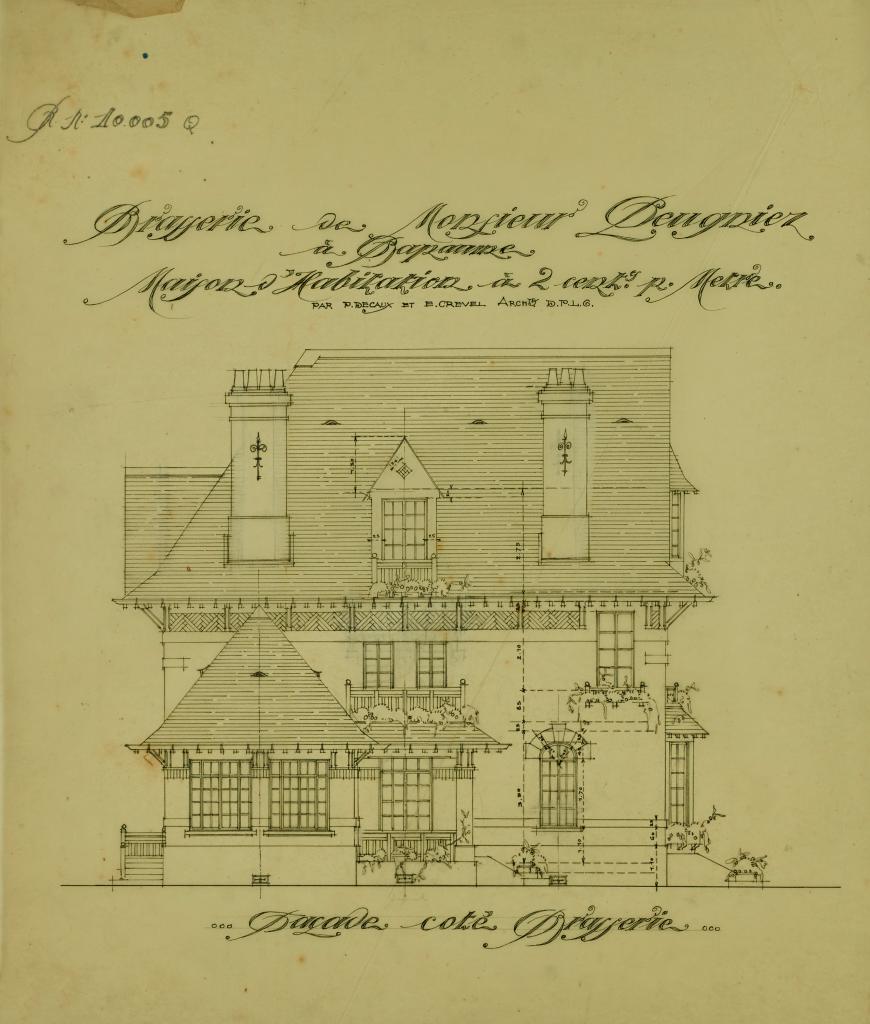 R. N: 10.005 Q
Brasserie de Monsieur Peugniez
à Bapaume
Maison d'Habitation à 2 centes. p. Mètre.
PAR P. DECAUX ET E. CREVEL Archtes D.P.L.G.
Façade coté Brasserie